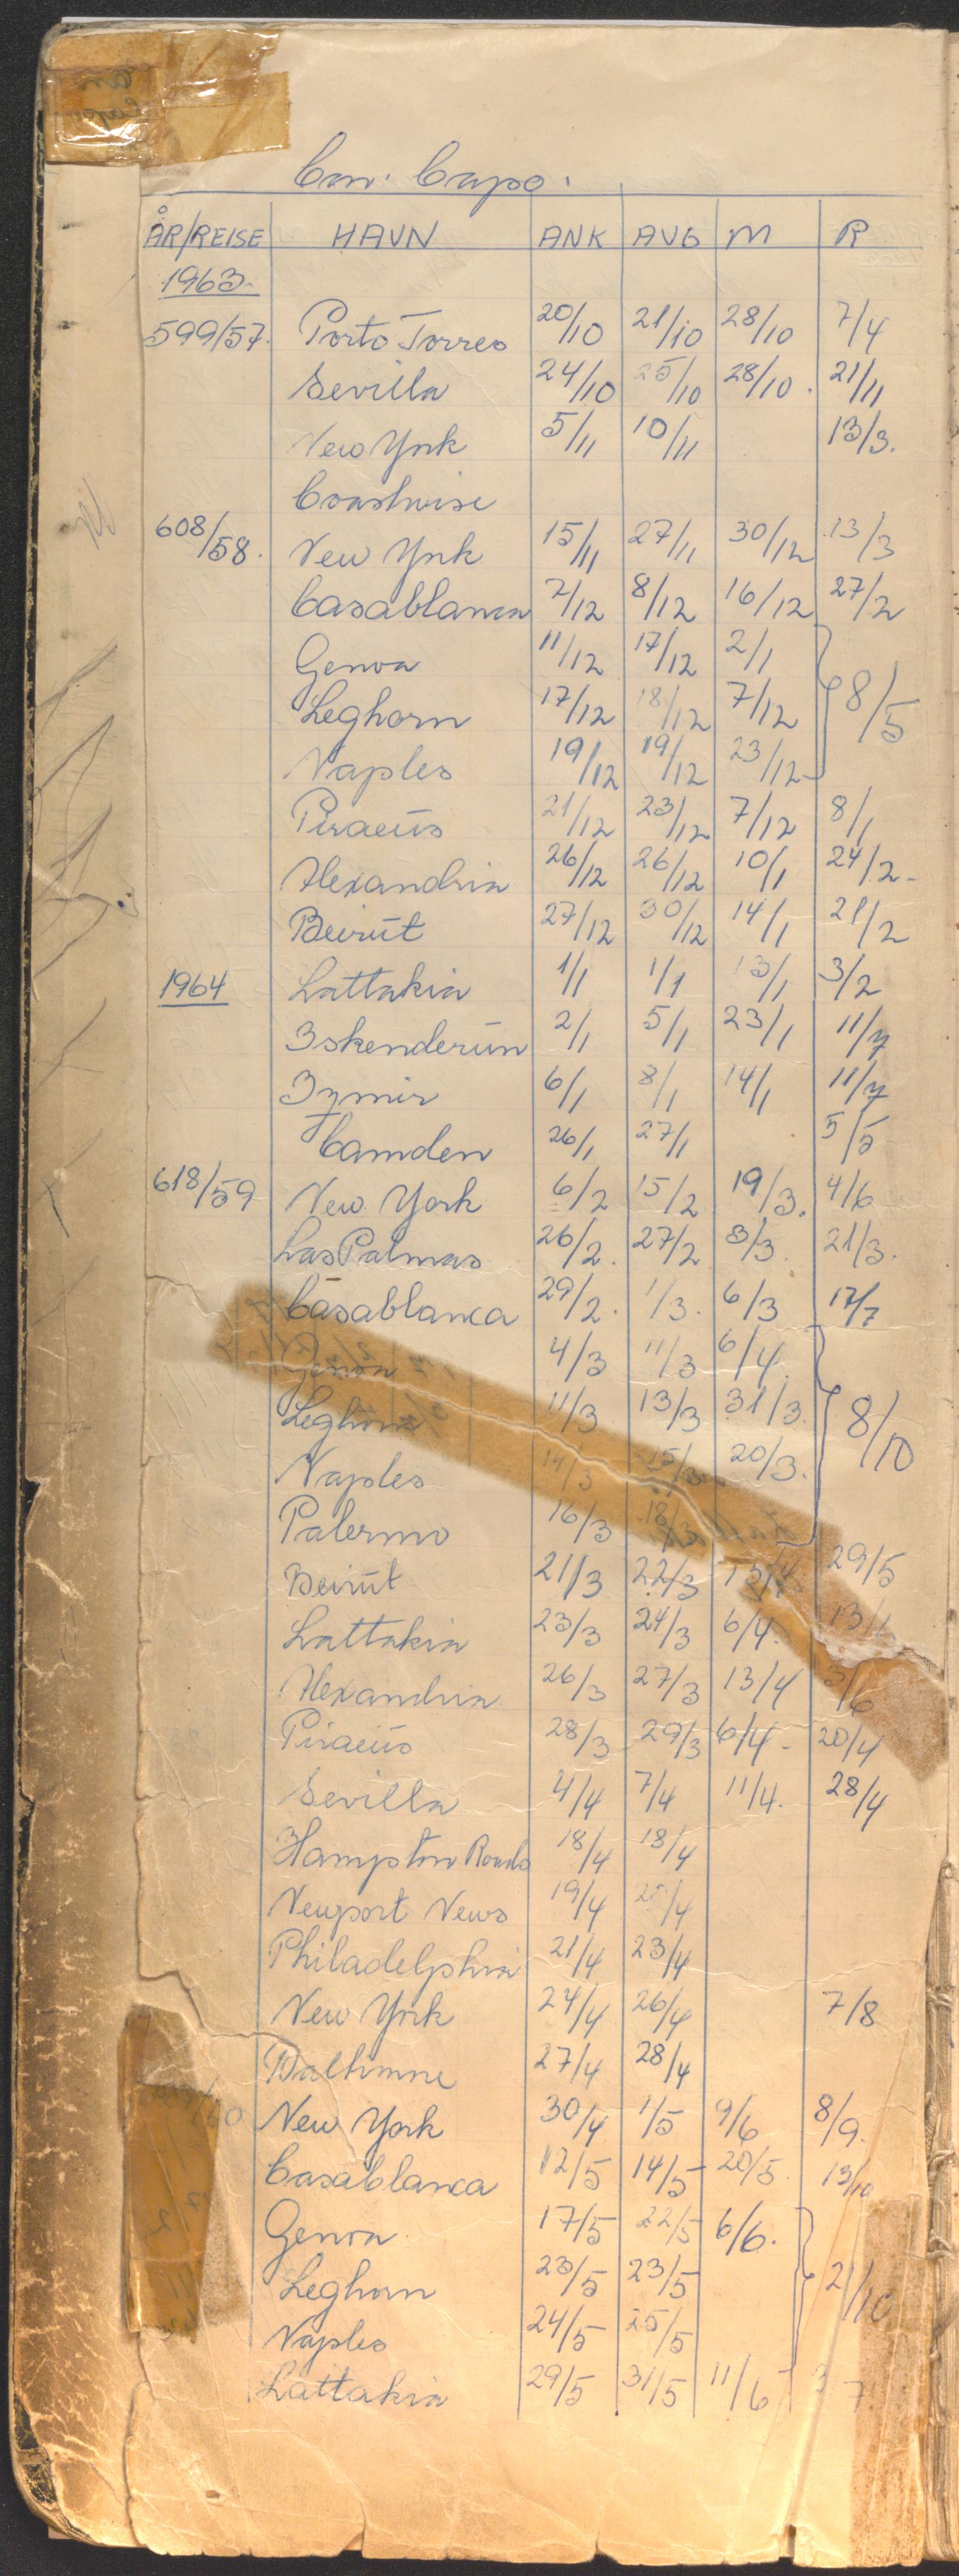 Con. Capo.
ÅR/REISE HAVN ANK AVG M R
1963.
599/57. Porto Torres 20/10 21/10 28/10 7/4
Sevilla 24/10 25/10 28/10. 21/11
New York 5/11 10/11 13/3.
Coastwise
608/58. New York 15/11 27/11 30/12 13/3
Casablanca 7/12 8/12 16/12 27/2
Genoa 11/12 17/12 2/1
Leghorn 17/12 18/12 7/12 8/5
Naples 19/12 19/12 23/12
Piraeus 21/12 23/12 7/12 8/1
Alexandria 26/12 26/12 10/1 24/2-
Beirut 27/12 30/12 14/1 21/2
1964 Lattakia 1/1 1/1 13/1 3/2
Iskenderun 2/1 5/1 23/1 11/7
Izmir 6/1 8/1 14/1 11/7
Camden 26/1 27/1 5/5
618/59 New York 6/2 15/2 19/3. 4/6
Las Palmas 26/2. 27/2 3/3. 21/3.
Casablanca 29/2. 1/3. 6/3 17/7
Genoa 4/3 11/3 6/4.
Leghorn 11/3 13/3 31/3. 8/10
Naples 14/3 15/3 20/3.
Palermo 16/3 18/3
Beirut 21/3 22/3 13/4 29/5
Lattakia 23/3 24/3 6/4. 13/
Alexandria 26/3 27/3 13/4 3/6
Piraeus 28/3 29/3 6/4- 20/4
Sevilla 4/4 7/4 11/4. 28/4
Hampton Roads 18/4 18/4
Newport News 19/4 20/4
Philadelphia 21/4 23/4
New York 24/4 26/4 7/8
Baltimore 27/4 28/4
New York 30/4 1/5 9/6 8/9.
Casablanca 12/5 14/5 20/5. 13/10
Genoa 17/5 22/5 6/6.
Leghorn 23/5 23/5 21/10
Naples 24/5 25/5
Lattakia 29/5 31/5 11/6 3 7